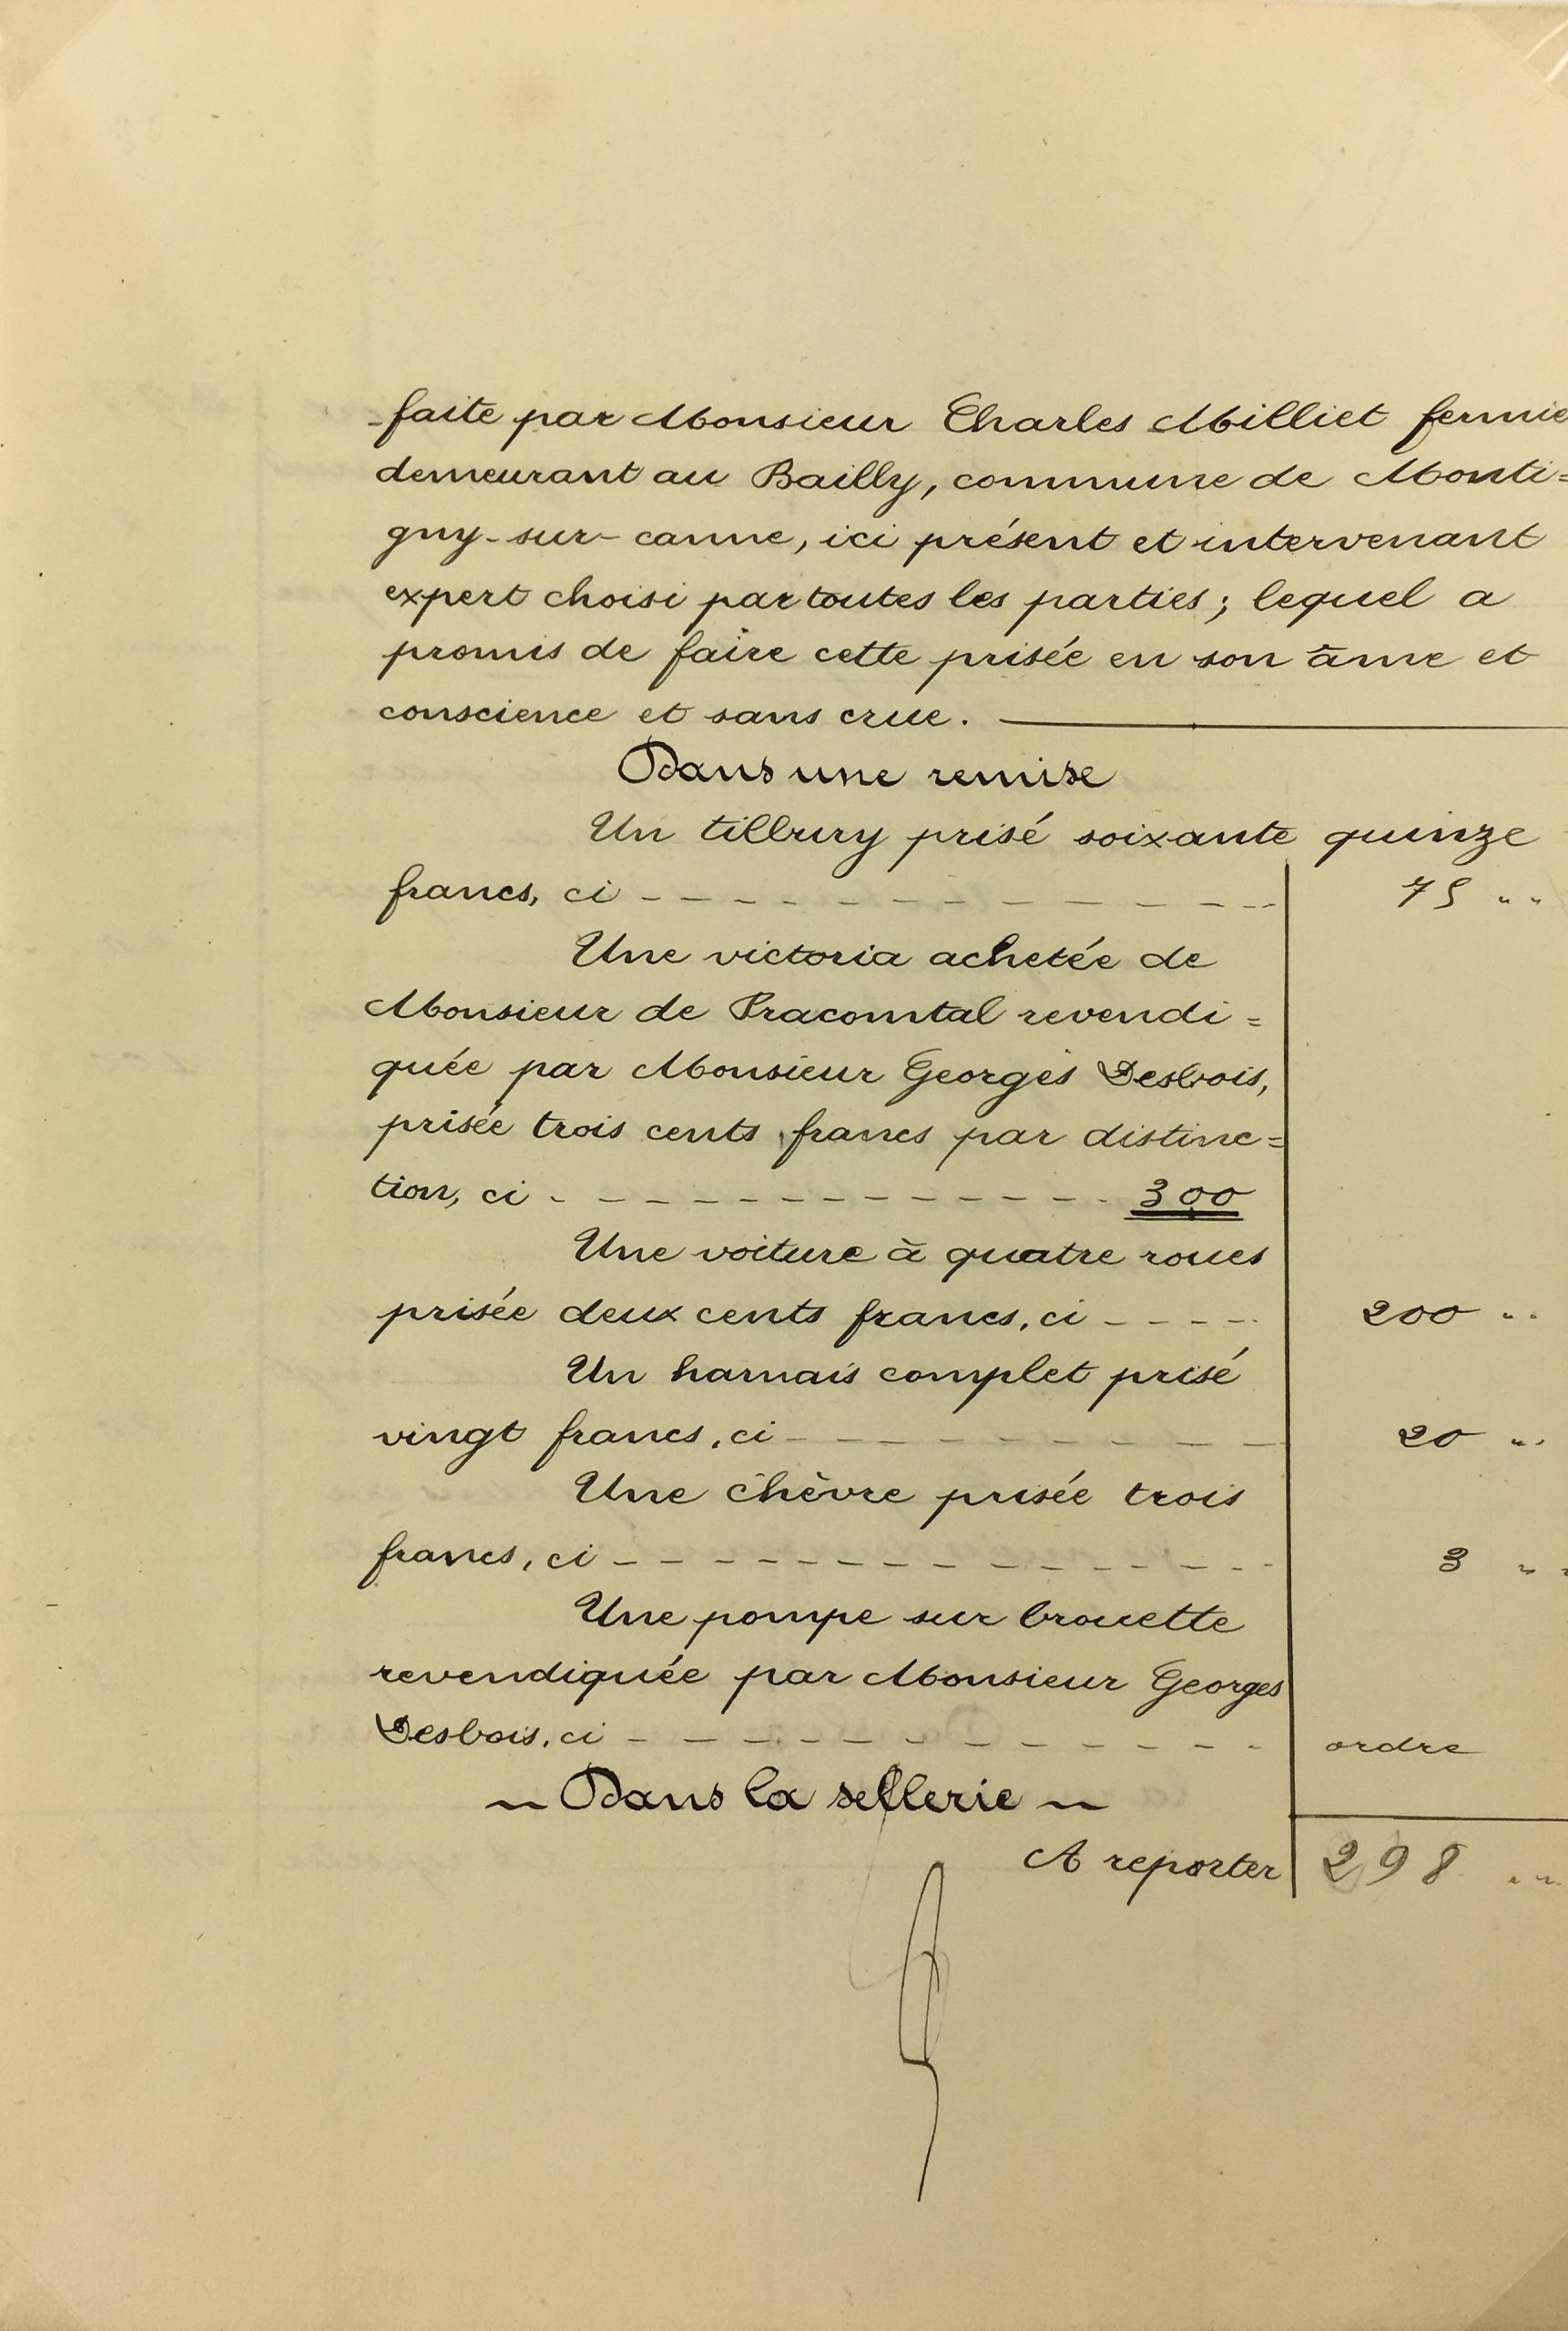 faite par Monsieur Charles Milliet fermie
demeurant au Bailly, commune de Monti=
gny-sur-canne, ici présent et intervenant
expert choisi par toutes les parties ; lequel a
promis de faire cette prisée en son âme et
conscience et sans crue. ———
Dans une remise
Un tilbury prisé soixante quinze
francs, ci - - - - - - - - - - - - - - 75 " "
Une victoria achetée de
Monsieur de Pracomtal revendi=
quée par Monsieur Georges Desbois,
prisée trois cents francs par distinc=
tion, ci - - - - - - - - - - - - - 300
Une voiture à quatre roues
prisée deux cents francs, ci - - - - - 200 " "
Un harnais complet prisé
vingt francs, ci - - - - - - - - - - - 20 " "
Une chèvre prisée trois
francs, ci - - - - - - - - - - - - - - 3 " "
Une pompe sur brouette
revendiquée par Monsieur Georges
Desbois, ci - - - - - - - - - - - - - - ordre
~ Dans la sellerie ~
A reporter 298 " "